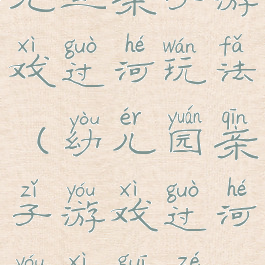 儿 亲 子 游
xì guò hé wán fǎ
戏过河玩法
yòu ér yuán qīn
（幼儿园亲
zǐ yóu xì guò hé
子游戏过河
yóu xì guī zé